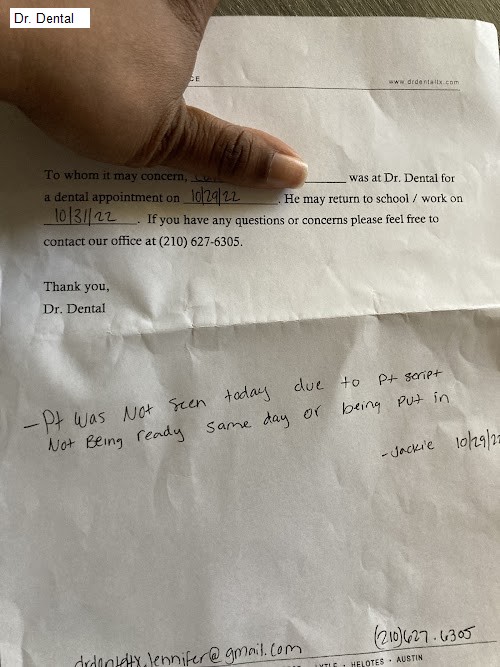 Dr. Dental
CE
www.drdentaltx.com
To whom it may concern, was at Dr. Dental for
a dental appointment on 10/29/22. He may return to school / work on
10/31/22. If you have any questions or concerns please feel free to
contact our office at (210) 627-6305.
Thank you,
Dr. Dental
- Pt was Not seen today due to Pt script
Not Being ready same day or being put in
- Jackie 10/29/22
drdentaltx.jennifer@gmail.com (210)627.6305
LYTLE • HELOTES • AUSTIN